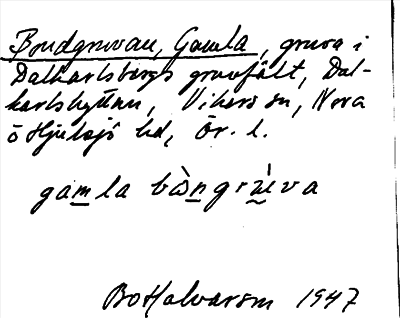 Bondgruvan, Gamla, gruva i
Dalkarlsbergs gruvfält, Dal-
karlshyttan, Vikers sn, Nora
o Hjulsjö hd, Ör. l.
gamla bòngrùva
Bo Halvarson 1947